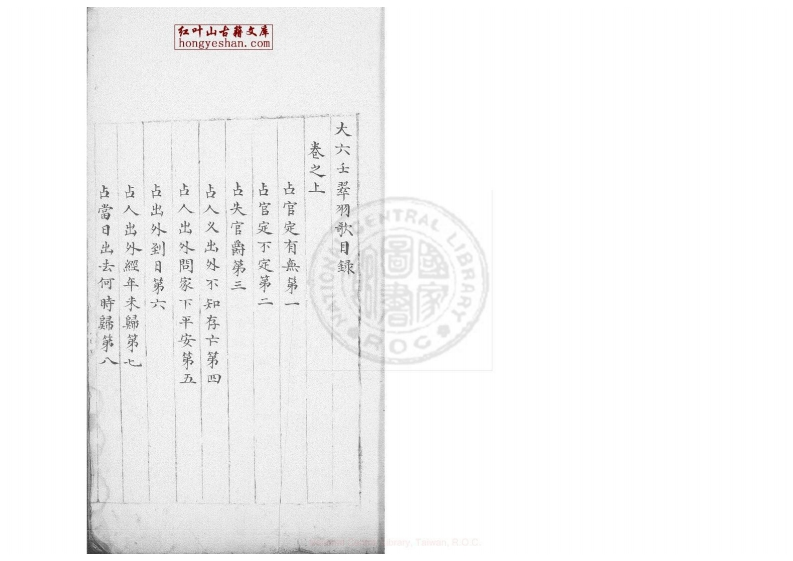 红叶山古籍文库
hongyeshan.com
大六壬翠羽歌目錄
卷之上
占官定有無第一
占官定不定第二
占失官爵第三
占人久出外不知存亡第四
占人出外問家下平安第五
占出外到日第六
占人出外經年未歸第七
占當日出去何時歸第八
NATIONAL CENTRAL LIBRARY
R.O.C.
國家圖書館
Library, Taiwan, R.O.C.